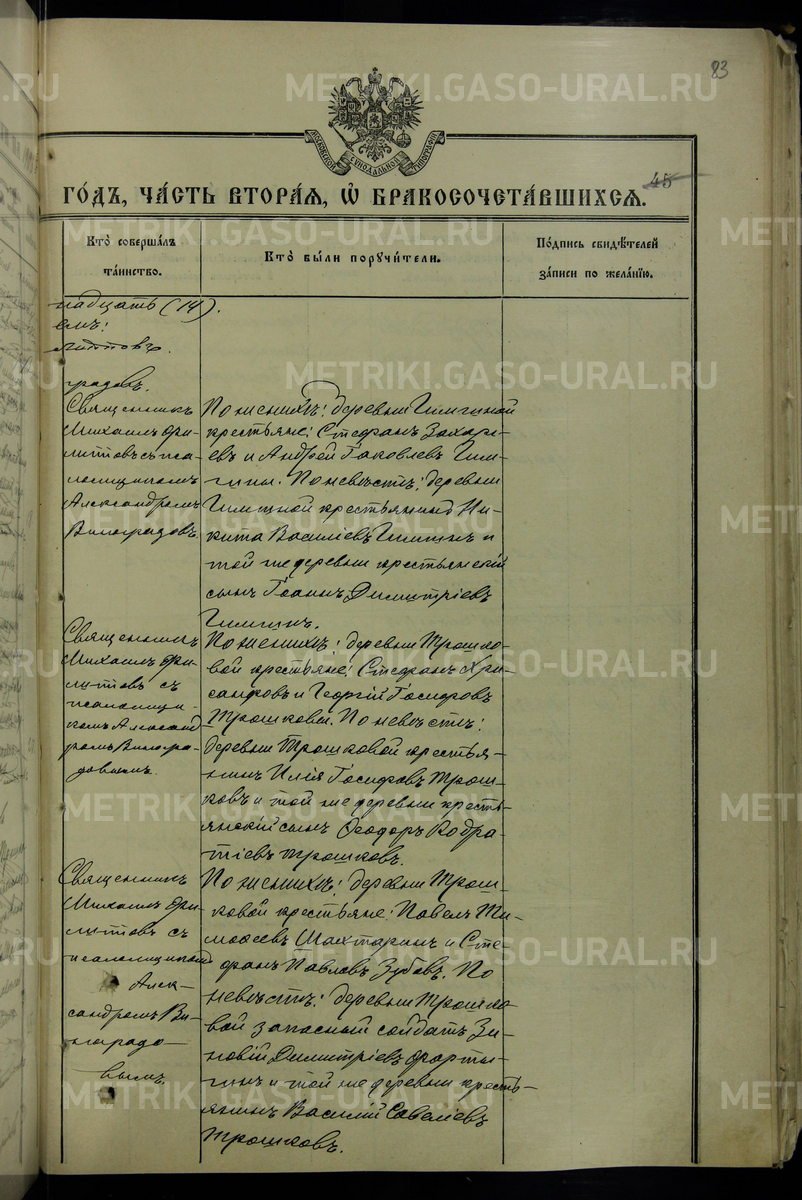 83
МОСКОВСКОЙ СѴНОДАЛЬНОЙ ТИПОГРАФІИ
45
ГО́ДЪ, ЧА́СТЬ ВТОРА́Ѧ, Ѡ҆ БРАКОСОЧЕТА́ВШИХСѦ.
Кто̀ соверша́лъ
та́инство.
Кто̀ бы́ли порꙋчи́тели.
По́дпись свидѣ́телей
за́писи по жела́нїю.
надцать (14).
емъ:
липповъ.
градовъ.
Священникъ
Михаилъ Фи-
липповъ съ пса-
ломщикомъ
Александромъ
Виноградов.
По женихѣ: деревни Гилгиной
крестьяне: Стефанъ Захар-
евъ и Андрей Іаковлевъ Гил-
гины. По невѣстѣ: деревни
крестьянинъ Ни-
кита Василіевъ и
той же деревни крестьянскій
сынъ Іоаннъ Димитріевъ
Священникъ
Михаилъ Фи-
липповъ съ
псаломщи-
комъ Александ
ромъ Виногра-
довымъ.
По женихѣ: деревни Трошко-
вой крестьяне: Стефанъ Хри-
санфовъ и Георгій Іосифовъ
Трошковы. По невѣстѣ:
деревни Трошковой крестья-
нинъ Илія Іосифовъ Трош-
ковъ и той же деревни кресть-
янскій сынъ Ѳеодоръ Кодра-
тіевъ Трошковъ.
Священникъ
Михаилъ Фи-
липповъ съ
псаломщикомъ
Алек-
сандромъ Ви-
ноградо-
вымъ.
По женихѣ: деревни Трош-
ковой крестьяне: Павелъ Ти-
моѳеевъ Шахтаринъ и Сте-
фанъ Павловъ Зубовъ. По
невѣстѣ: деревни Трошко-
вой запасный солдатъ Зи-
новій Димитріевъ Фарты-
гинъ и той же деревни кресть-
янинъ Василій Савеліевъ
Трошковъ.
METRIKI.GASO-URAL.RU